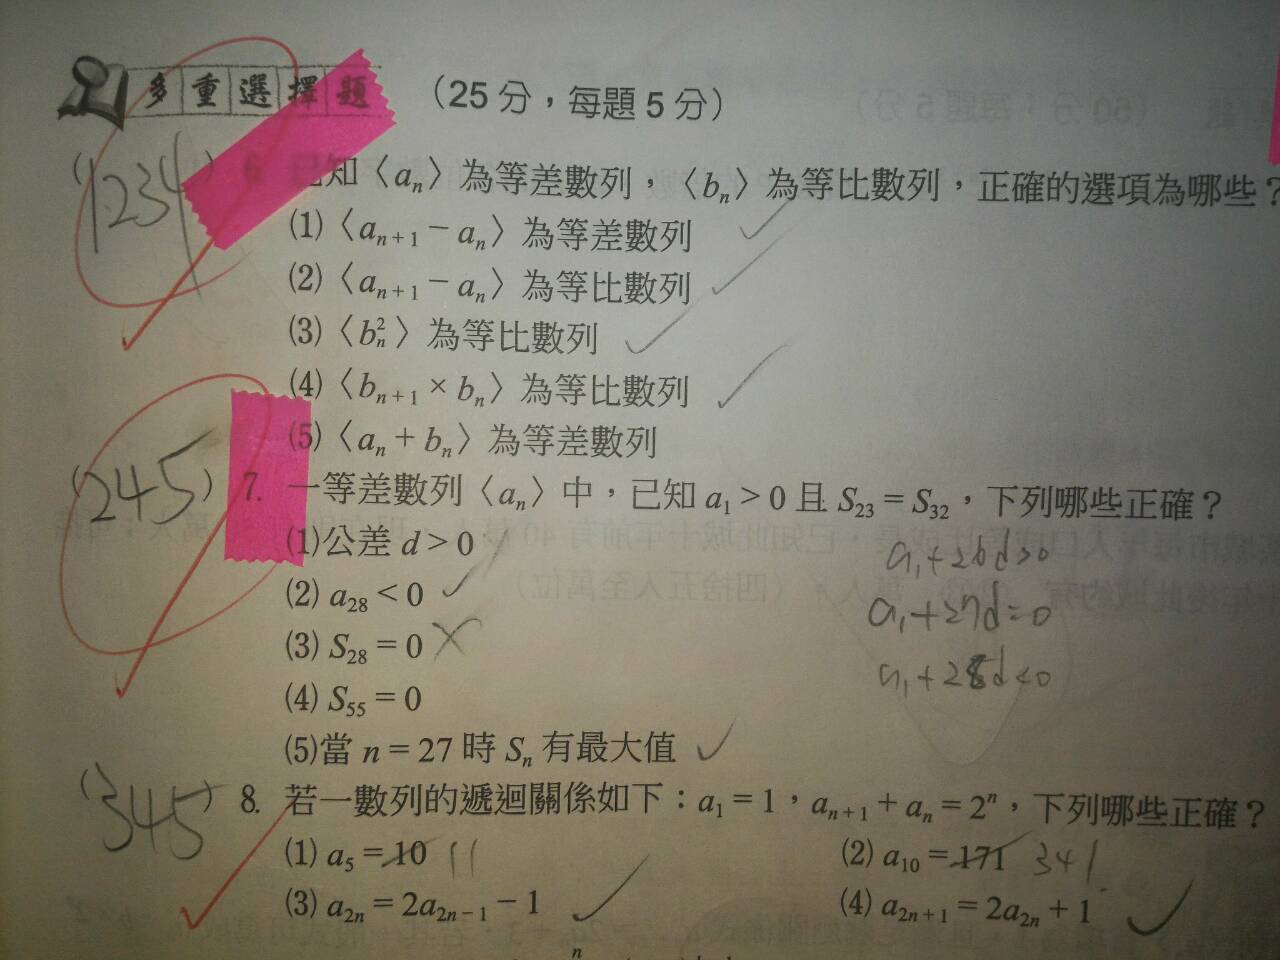 多重選擇題 (25分,每題5分)
(1234) 6. 已知〈aₙ〉為等差數列,〈bₙ〉為等比數列,正確的選項為哪些?
(1)〈aₙ₊₁ − aₙ〉為等差數列
(2)〈aₙ₊₁ − aₙ〉為等比數列
(3)〈bₙ²〉為等比數列
(4)〈bₙ₊₁ × bₙ〉為等比數列
(5)〈aₙ + bₙ〉為等差數列
(245) 7. 一等差數列〈aₙ〉中,已知 a₁ > 0 且 S₂₃ = S₃₂,下列哪些正確?
(1)公差 d > 0
a₁+26d>0
(2) a₂₈ < 0
a₁+27d=0
(3) S₂₈ = 0
a₁+28d<0
(4) S₅₅ = 0
(5)當 n = 27 時 Sₙ 有最大值
(345) 8. 若一數列的遞迴關係如下:a₁ = 1,aₙ₊₁ + aₙ = 2ⁿ,下列哪些正確?
(1) a₅ = 10 11 (2) a₁₀ = 171 341
(3) a₂ₙ = 2a₂ₙ₋₁ − 1 (4) a₂ₙ₊₁ = 2a₂ₙ + 1